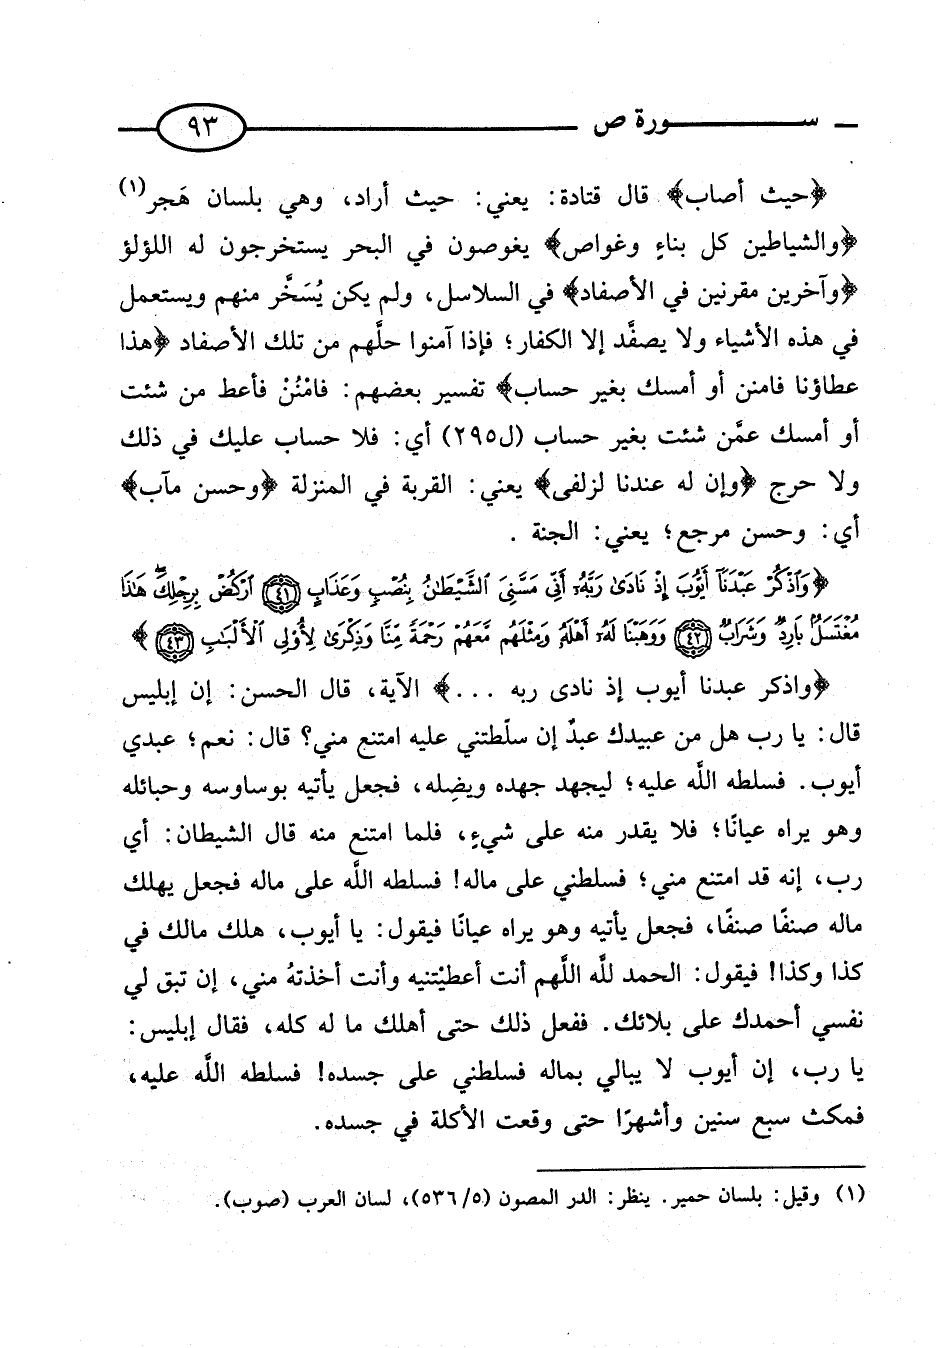 سورة ص ٩٣
﴿حيث أصاب﴾ قال قتادة: يعني: حيث أراد، وهي بلسان هَجر(١)
﴿والشياطين كل بناءٍ وغواص﴾ يغوصون في البحر يستخرجون له اللؤلؤ
﴿وآخرين مقرنين في الأصفاد﴾ في السلاسل، ولم يكن يُسَخَّر منهم ويستعمل
في هذه الأشياء ولا يصفَّد إلا الكفار؛ فإذا آمنوا حلَّهم من تلك الأصفاد ﴿هذا
عطاؤنا فامنن أو أمسك بغير حساب﴾ تفسير بعضهم: فامْنُنْ فأعط من شئت
أو أمسك عمَّن شئت بغير حساب (ل٢٩٥) أي: فلا حساب عليك في ذلك
ولا حرج ﴿وإن له عندنا لزلفى﴾ يعني: القربة في المنزلة ﴿وحسن مآب﴾
أي: وحسن مرجع؛ يعني: الجنة .
﴿وَٱذْكُرْ عَبْدَنَآ أَيُّوبَ إِذْ نَادَىٰ رَبَّهُۥٓ أَنِّى مَسَّنِىَ ٱلشَّيْطَٰنُ بِنُصْبٍ وَعَذَابٍ ٤١ ٱرْكُضْ بِرِجْلِكَۖ هَٰذَا
مُغْتَسَلٌۢ بَارِدٌ وَشَرَابٌ ٤٢ وَوَهَبْنَا لَهُۥٓ أَهْلَهُۥ وَمِثْلَهُم مَّعَهُمْ رَحْمَةً مِّنَّا وَذِكْرَىٰ لِأُو۟لِى ٱلْأَلْبَٰبِ ٤٣﴾
﴿واذكر عبدنا أيوب إذ نادى ربه ...﴾ الآية، قال الحسن: إن إبليس
قال: يا رب هل من عبيدك عبدٌ إن سلّطتني عليه امتنع مني؟ قال: نعم؛ عبدي
أيوب. فسلطه اللَّه عليه؛ ليجهد جهده ويضِله، فجعل يأتيه بوساوسه وحبائله
وهو يراه عيانًا؛ فلا يقدر منه على شيءٍ، فلما امتنع منه قال الشيطان: أي
رب، إنه قد امتنع مني؛ فسلطني على ماله! فسلطه اللَّه على ماله فجعل يهلك
ماله صنفًا صنفًا، فجعل يأتيه وهو يراه عيانًا فيقول: يا أيوب، هلك مالك في
كذا وكذا! فيقول: الحمد للَّه اللَّهم أنت أعطيْتنيه وأنت أخذتهُ مني، إن تبق لي
نفسي أحمدك على بلائك. ففعل ذلك حتى أهلك ما له كله، فقال إبليس:
يا رب، إن أيوب لا يبالي بماله فسلطني على جسده! فسلطه اللَّه عليه،
فمكث سبع سنين وأشهرًا حتى وقعت الأكلة في جسده.
(١) وقيل: بلسان حمير. ينظر: الدر المصون (٥/ ٥٣٦)، لسان العرب (صوب).